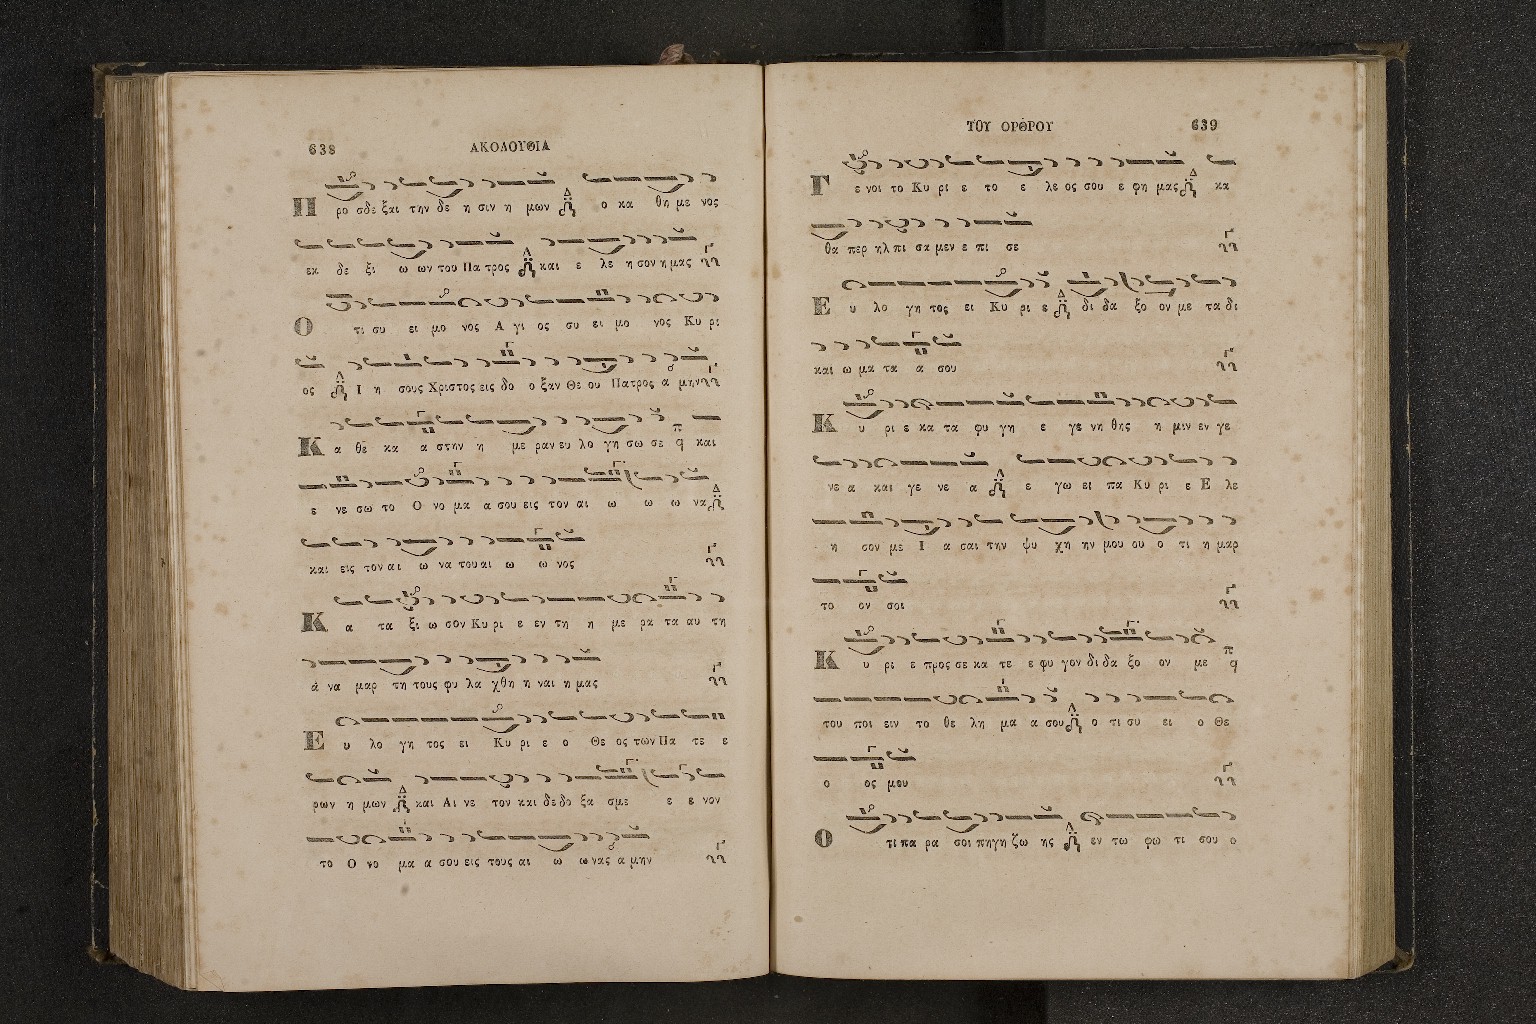 638 ΑΚΟΛΟΥΘΙΑ
Π ρο σδε ξαι την δε η σιν η μων ο κα θη με νος
εκ δε ξι ω ων του Πα τρος και ε λε η σον η μας
Ο τι συ ει μο νος Α γι ος συ ει μο νος Κυ ρι
ος Ι η σους Χριστος εις δο ο ξαν Θε ου Πατρος α μην
Κ α θε κα α στην η με ραν ευ λο γη σω σε και
ε νε σω το Ο νο μα α σου εις τον αι ω ω ω να
και εις τον αι ω να του αι ω ω νος
Κ α τα ξι ω σον Κυ ρι ε εν τη η με ρα τα αυ τη
ά να μαρ τη τους φυ λα χθη η ναι η μας
Ε υ λο γη τος ει Κυ ρι ε ο Θε ος των Πα τε ε
ρων η μων και Αι νε τον και δε δο ξα σμε ε ε νον
το Ο νο μα α σου εις τους αι ω ω νας α μην
ΤΟΥ ΟΡΘΡΟΥ 639
Γ ε νοι το Κυ ρι ε το ε λε ος σου ε φη μας κα
θα περ ηλ πι σα μεν ε πι σε
Ε υ λο γη τος ει Κυ ρι ε δι δα ξο ον με τα δι
και ω μα τα α σου
Κ υ ρι ε κα τα φυ γη ε γε νη θης η μιν εν γε
νε α και γε νε α ε γω ει πα Κυ ρι ε Ε λε
η σον με Ι α σαι την ψυ χη ην μου ου ο τι η μαρ
το ον σοι
Κ υ ρι ε προς σε κα τε ε φυ γον δι δα ξο ον με
του ποι ειν το θε λη μα α σου ο τι συ ει ο Θε
ο ος μου
Ο τι πα ρα σοι πηγη ζω ης εν τω φω τι σου ο